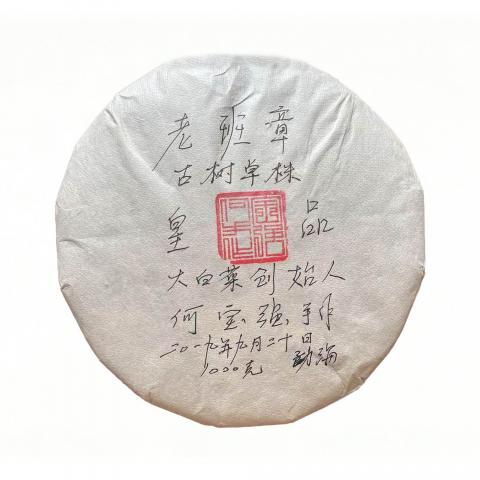 老班章
古树单株
皇品
大白菜创始人
何宝强手作
二〇一九年九月二十日
1000克 勐海